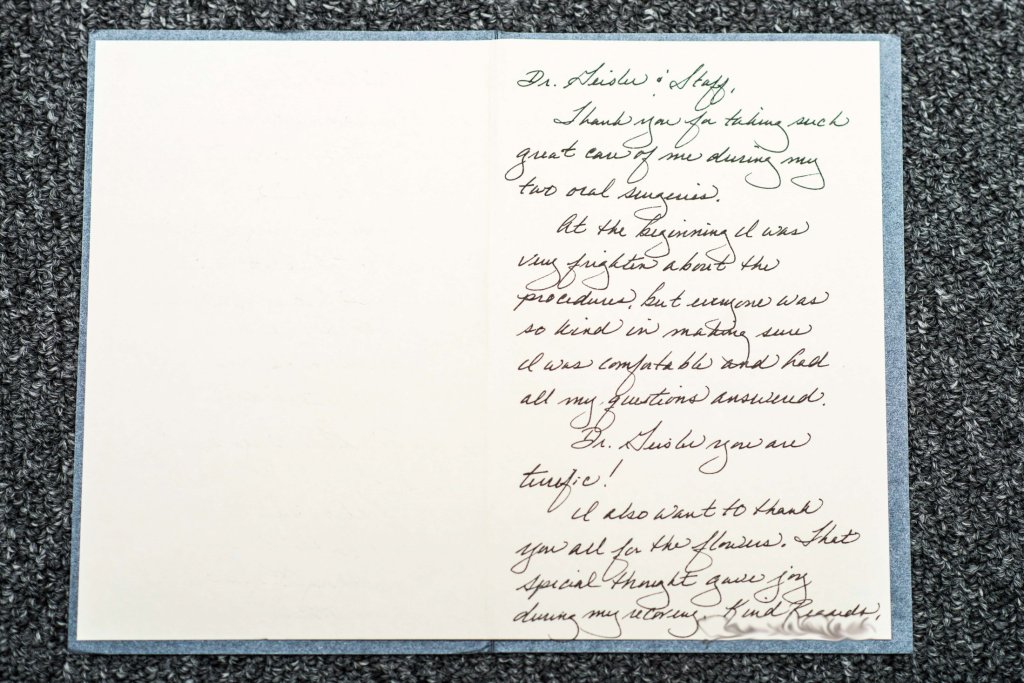 Dr. Geisler & Staff,
Thank you for taking such
great care of me during my
two oral surgeries.
At the beginning I was
very frighten about the
procedures, but everyone was
so kind in making sure
I was comfortable and had
all my questions answered.
Dr. Geisler you are
terrific!
I also want to thank
you all for the flowers. That
special thought gave joy
during my retoring. Kind Regards,